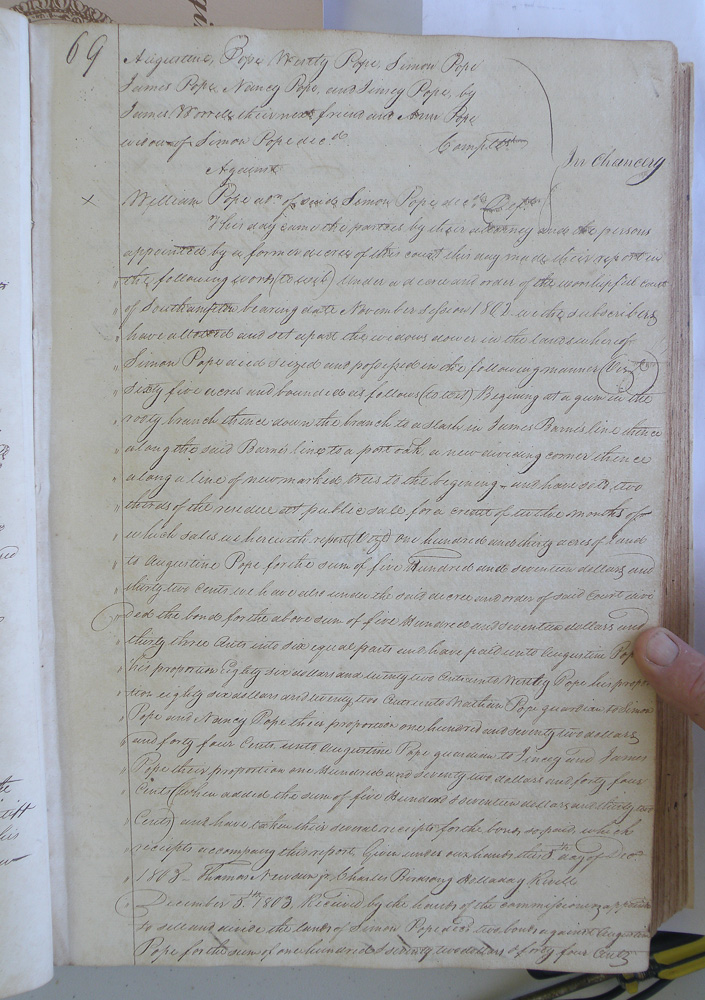 69
Augustine Pope Westly Pope Simon Pope
James Pope Nancy Pope and Jincey Pope, by
James Worrell their next friend and Ann Pope
widow of Simon Pope decd Complts
Against In Chancery
x William Pope adr of said Simon Pope decd Deft
This day came the parties by their attorney and the persons
appointed by a former decree of this court this day made their report in
the following words (to wit) Under a decree and order of the worshipful court
of Southampton bearing date November Session 1802 we the subscribers
have allotted and set apart the widows dower in the lands whereof
Simon Pope died seized and possessed in the following manner (Viz)
Sixty five acres and bounded as follows (to wit) Begining at a gum in the
rooty branch thence down the branch to a slash in James Barnes line thence
along the said Barnes line to a post oak, a new dividing corner thence
along a line of new marked trees to the begining and have sold two
thirds of the residue at public sale for a credit of twelve months of
which sales we herewith report (Viz) one hundred and thirty acres of Land
to Augustine Pope for the sum of five Hundred and seventeen dollars and
thirty two Cents we have also under the said decree and order of said Court divi
ded the bonds for the above sum of five Hundred and seventeen dollars and
thirty three Cents into six equal parts and have paid unto Augustine Pope
his proportion Eighty six dollars and twenty two Cents unto Westly Pope his propor
tion eighty six dollars and twenty two Cents unto Nathan Pope guardian to Simon
Pope and Nancy Pope their proportion one hundred and seventy two dollars
and forty four Cents unto Augustine Pope guardian to Jincey and James
Pope their proportion one Hundred and seventy two dollars and forty four
Cents (when added the sum of five Hundred & seventeen dollars and thirty two
Cents) and have taken their several receipts for the bonds so paid which
receipts accompany this report, Given under our hands this 5th day of Decr
1803 Thomas Newsum jr, Charles Birdsong Holladay Revell
December 5th 1803 Received by the hands of the commissioners appointed
to sell and divide the lands of Simon Pope decd two bonds against Augustine
Pope for the sum of one hundred & seventy two dollars & forty four Cents